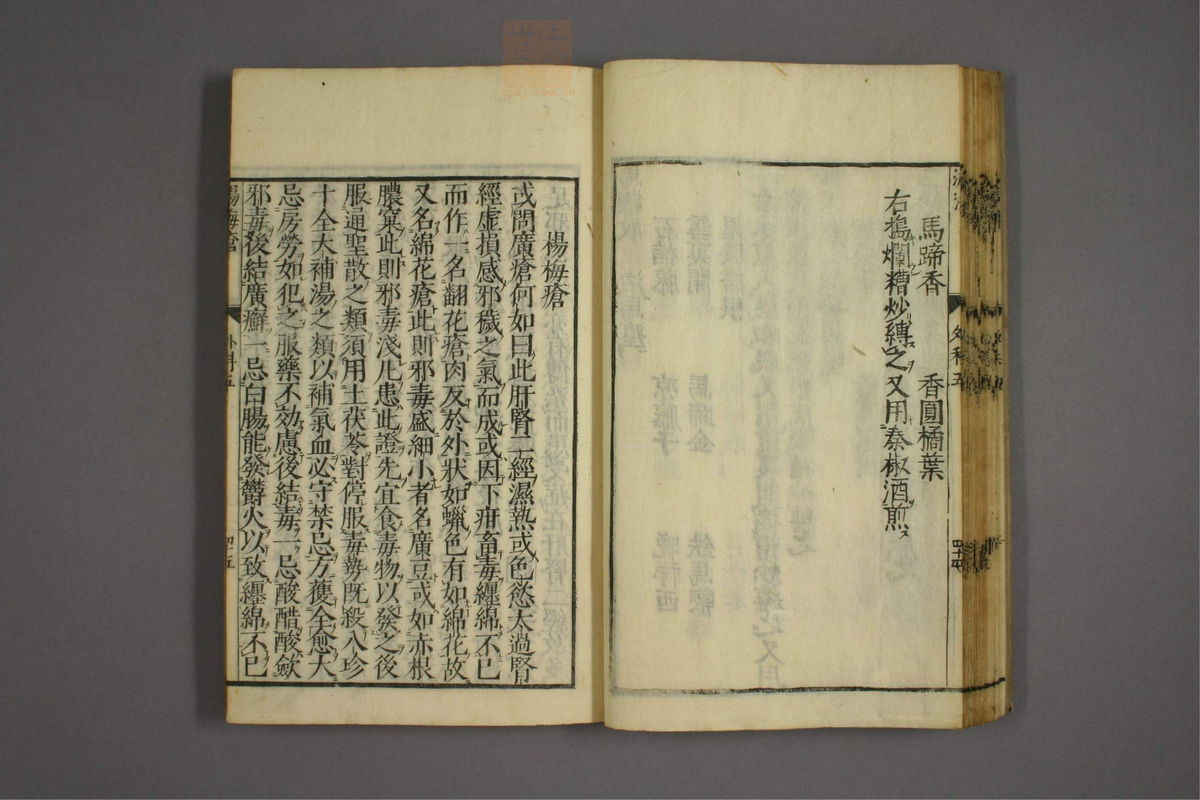 馬蹄香　香圓橘葉
右搗爛糟炒縛之又用秦椒酒煎
外科五
楊梅瘡
或問廣瘡何如曰此肝腎二經濕熱或色慾太過腎
經虛損感邪穢之氣而成或因下疳畜毒纏綿不已
而作一名翻花瘡肉反於外狀如蠟色有如綿花故
又名綿花瘡此則邪毒盛細小者名廣豆或如赤根
膿窠此則邪毒淺凡患此證先宜食毒物以發之後
服通聖散之類須用土茯苓對停服毒勢既殺八珍
十全大補湯之類以補氣血必守禁忌方獲全愈大
忌房勞如犯之服藥不効慮後結毒一忌酸醋酸歛
邪毒後結廣癬一忌白腸能發欝火以致纏綿不已
楊梅瘡
外科五
四十五